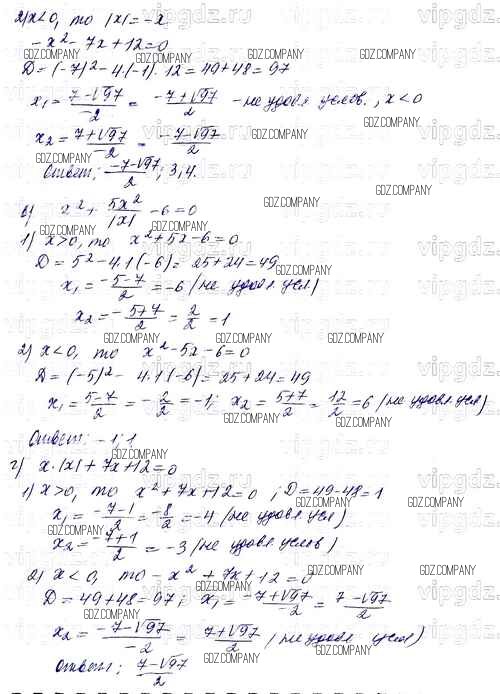 2) x<0, то |x| = -x
-x² - 7x + 12 = 0
D = (-7)² - 4·(-1)·12 = 49 + 48 = 97
x₁ = (7-√97)/-2 = (-7+√97)/2 - не удовл. услов., x<0
x₂ = (7+√97)/-2 = (-7-√97)/2
Ответ: (-7-√97)/2; 3; 4.
в) x² + 5x²/|x| - 6 = 0
1) x>0, то x² + 5x - 6 = 0
D = 5² - 4·1(-6) = 25 + 24 = 49
x₁ = (-5-7)/2 = -6 (не удовл. усл)
x₂ = (-5+7)/2 = 2/2 = 1
2) x<0, то x² - 5x - 6 = 0
D = (-5)² - 4·1(-6) = 25 + 24 = 49
x₁ = (5-7)/2 = -2/2 = -1; x₂ = (5+7)/2 = 12/2 = 6 (не удовл. усл)
Ответ: -1; 1
г) x·|x| + 7x + 12 = 0
1) x>0, то x² + 7x + 12 = 0; D = 49 - 48 = 1
x₁ = (-7-1)/2 = -8/2 = -4 (не удовл. усл)
x₂ = (-7+1)/2 = -3 (не удовл. услов)
2) x<0, то -x² + 7x + 12 = 0
D = 49 + 48 = 97; x₁ = (-7+√97)/-2 = (7-√97)/2
x₂ = (-7-√97)/-2 = (7+√97)/2 (не удовл. усл)
Ответ: (7-√97)/2